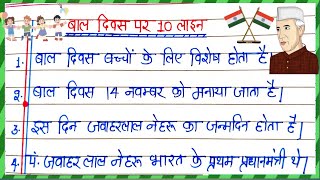 बाल दिवस पर 10 लाइन
1. बाल दिवस बच्चों के लिए विशेष होता है।
2. बाल दिवस 14 नवम्बर को मनाया जाता है।
3. इस दिन जवाहरलाल नेहरू का जन्मदिन होता है।
4. पं. जवाहर लाल नेहरू भारत के प्रथम प्रधानमंत्री थे।